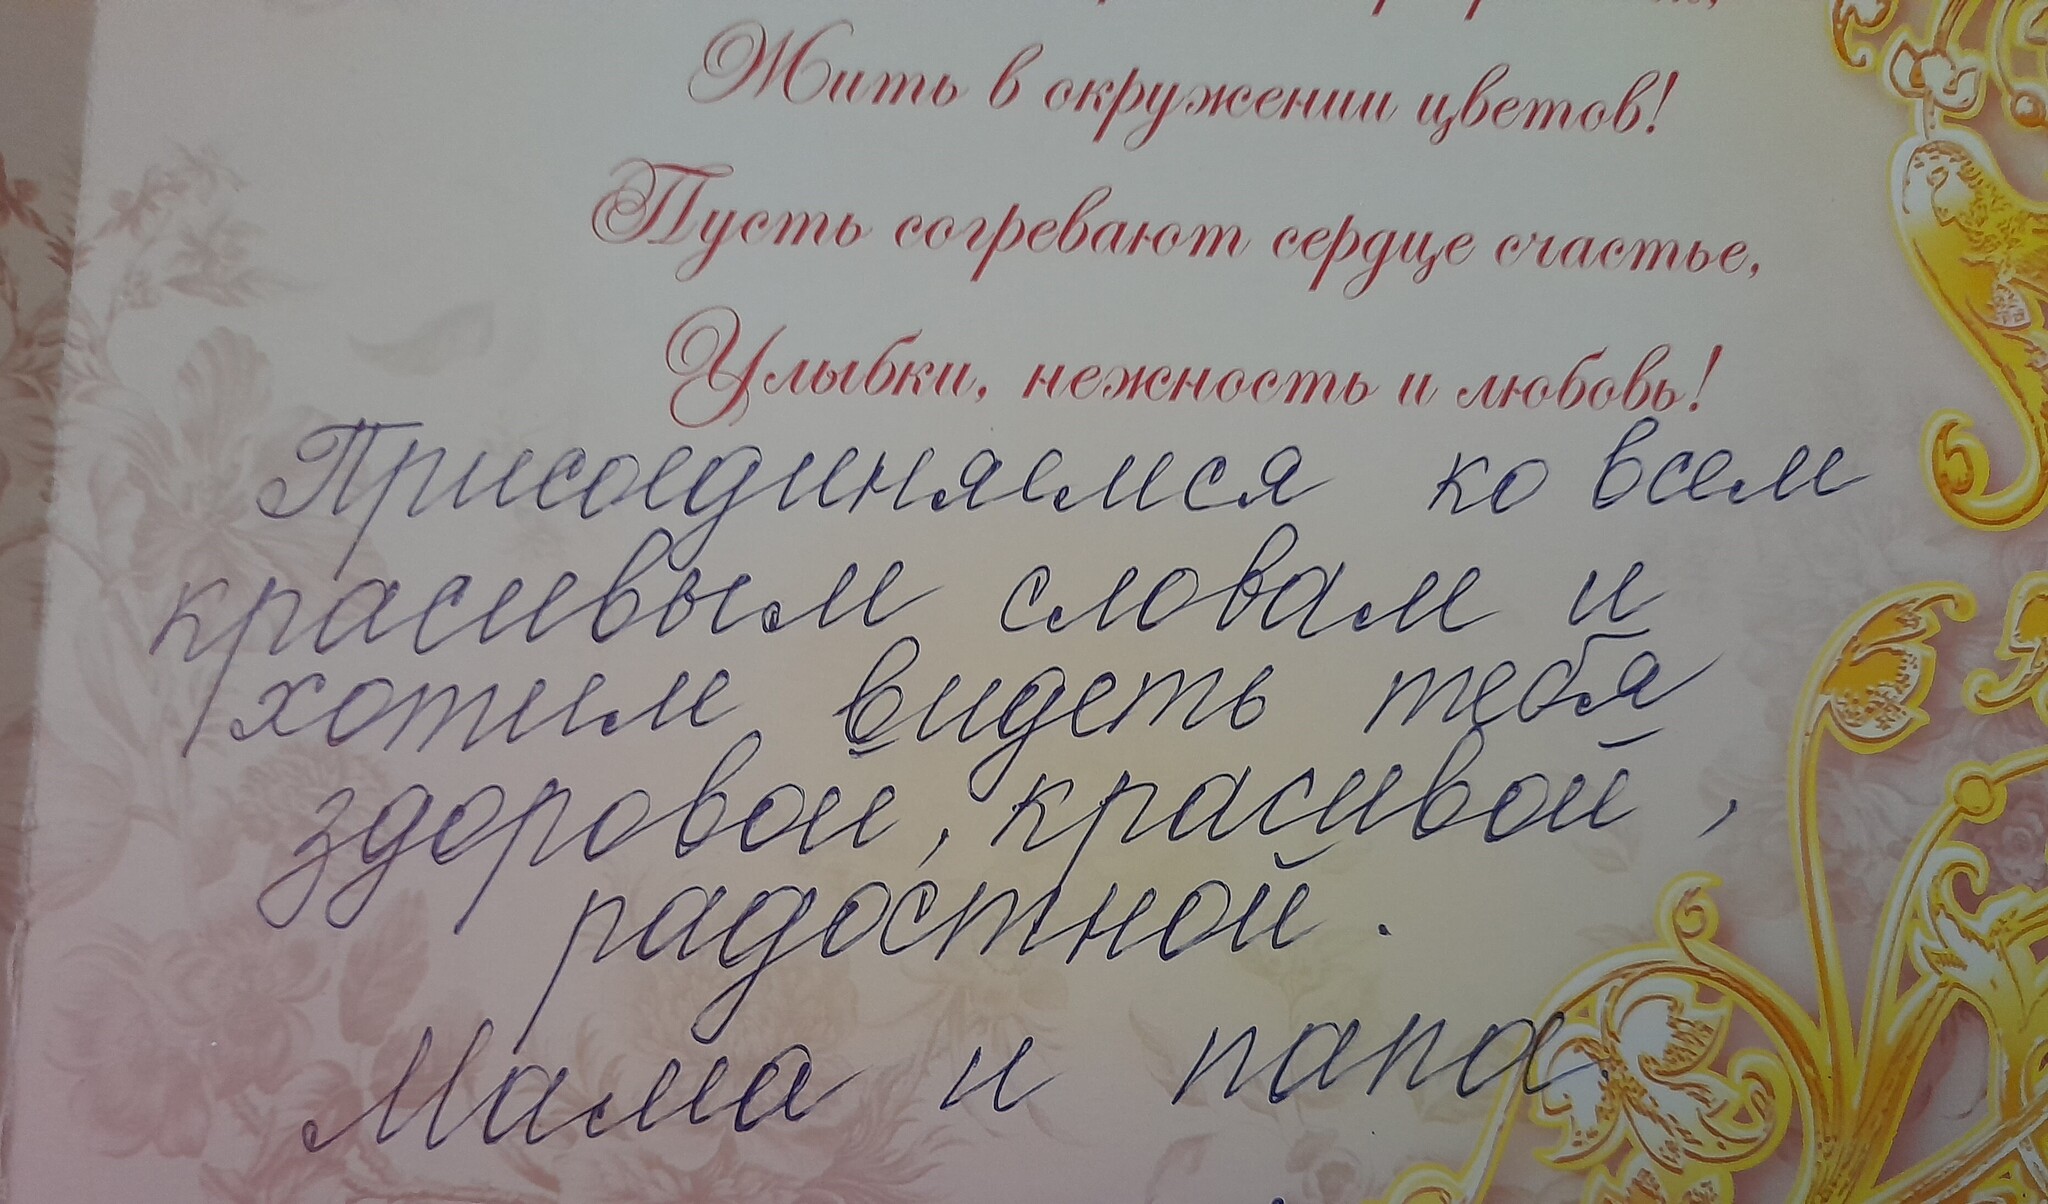 Жить в окружении цветов!
Пусть согревают сердце счастье,
Улыбки, нежность и любовь!
Присоединяемся ко всем
красивым словам и
хотим видеть тебя
здоровой, красивой,
радостной.
Мама и папа.